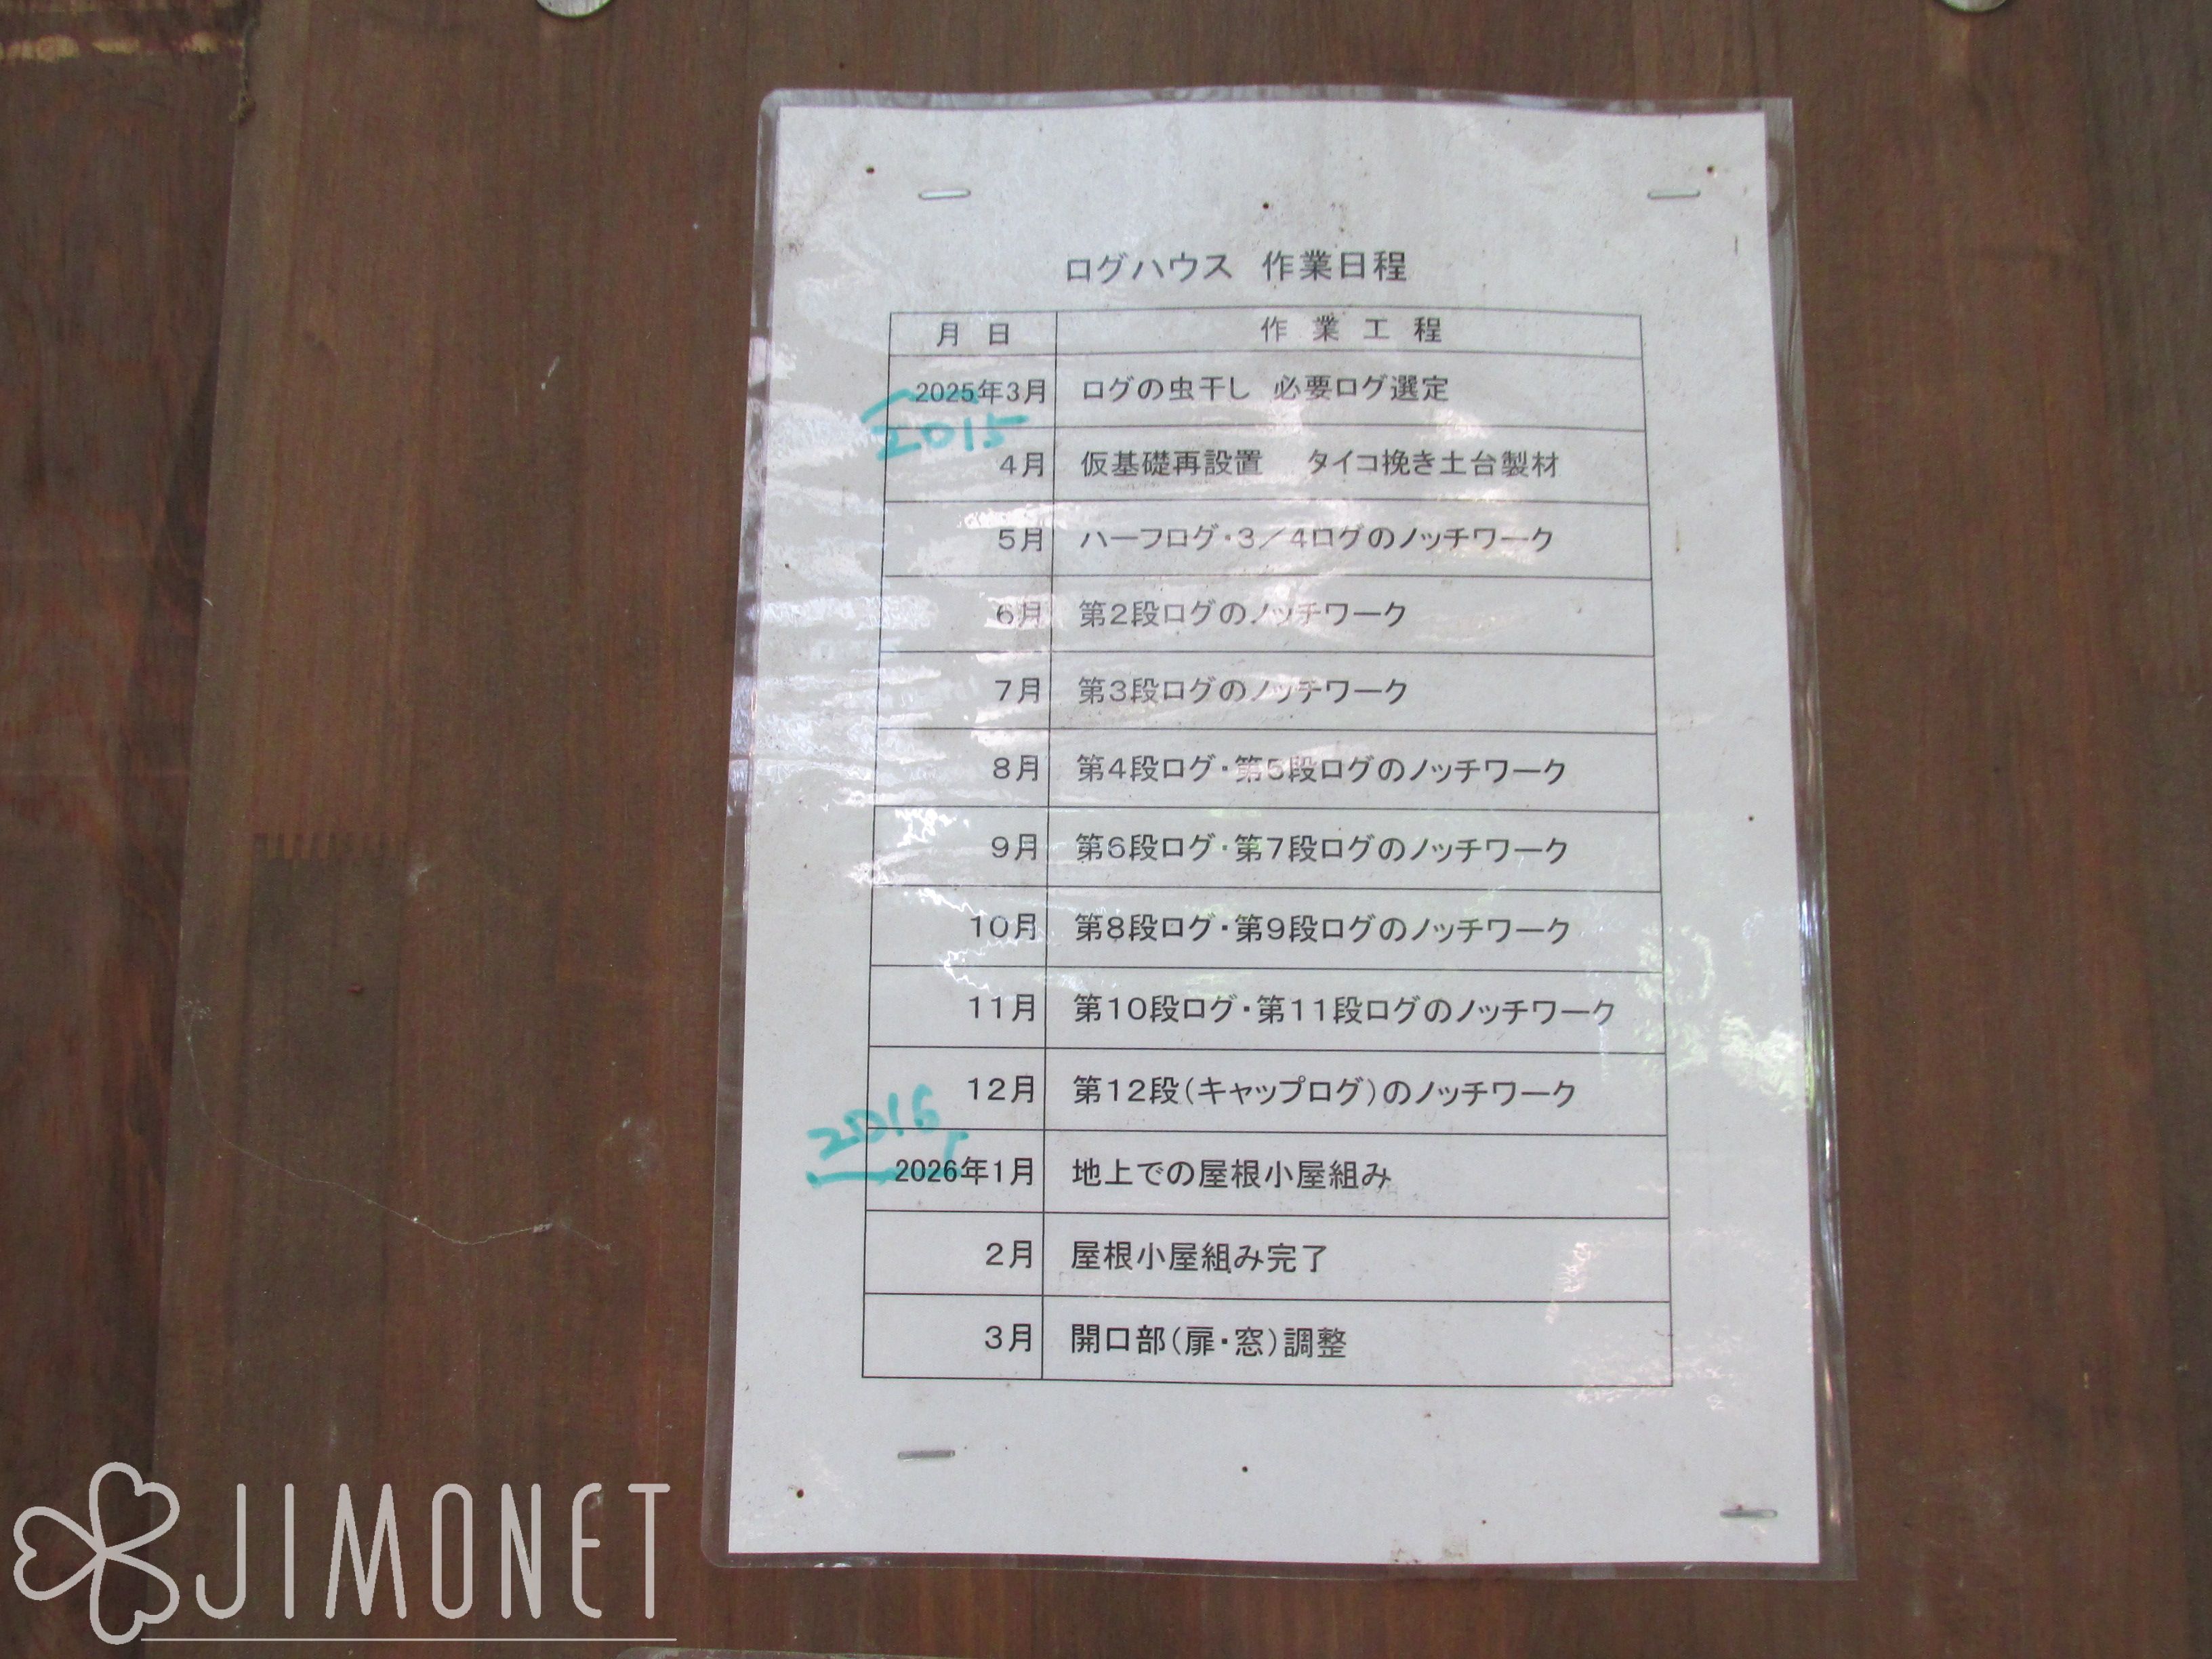 ログハウス 作業日程
月 日 作 業 工 程
2025年3月 ログの虫干し 必要ログ選定
2015
4月 仮基礎再設置 タイコ挽き土台製材
5月 ハーフログ・3／4ログのノッチワーク
6月 第2段ログのノッチワーク
7月 第3段ログのノッチワーク
8月 第4段ログ・第5段ログのノッチワーク
9月 第6段ログ・第7段ログのノッチワーク
10月 第8段ログ・第9段ログのノッチワーク
11月 第10段ログ・第11段ログのノッチワーク
12月 第12段(キャップログ)のノッチワーク
2016
2026年1月 地上での屋根小屋組み
2月 屋根小屋組み完了
3月 開口部(扉・窓)調整
JIMONET